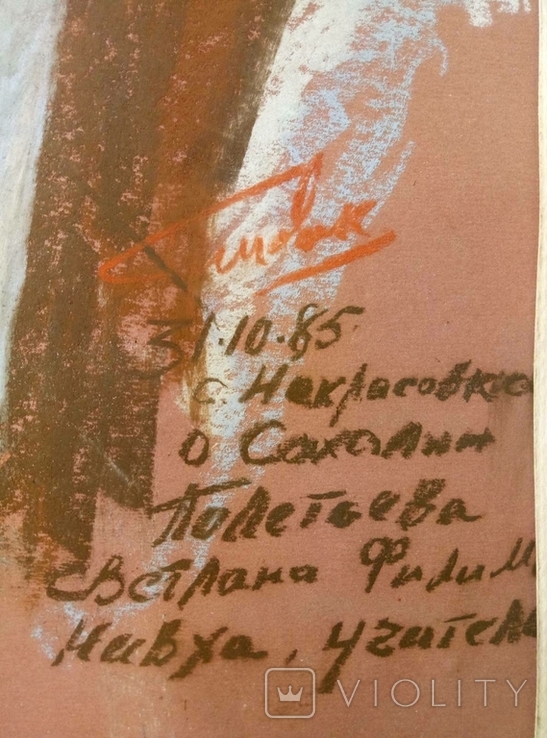 31.10.85
с. Некрасовка
о Сахалин
Полетьева
Светлана Филим
Нивха, учитель
VIOLITY